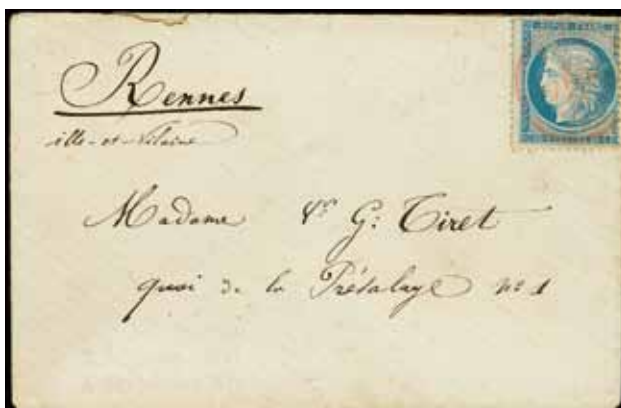 Rennes
ille-et-Vilaine
Madame G: Tiret
quai de la Prévalaye nº 1